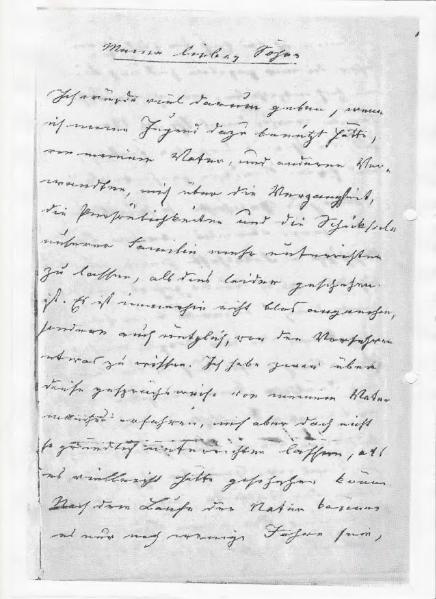 Meine lieben Söhne
Ich würde viel darum geben, wenn
ich meine Jugend dazu benützt hätte,
von meinem Vater, und anderen Ver-
wandten, mich über die Vergangenheit,
die Persönlichkeiten und die Schicksale
unserer Familie mehr unterrichten
zu lassen, als dies leider geschehen
ist. Es ist immerhin nicht blos angenehm,
sondern auch nützlich, von den Vorfahren
etwas zu wissen. Ich habe zwar über
diese gesprächsweise von meinem Vater
manches erfahren, mich aber doch nicht
so gründlich unterrichten lassen, als
es vielleicht hätte geschehen können
Nach dem Laufe der Natur
es nur noch wenige Jahre sein,